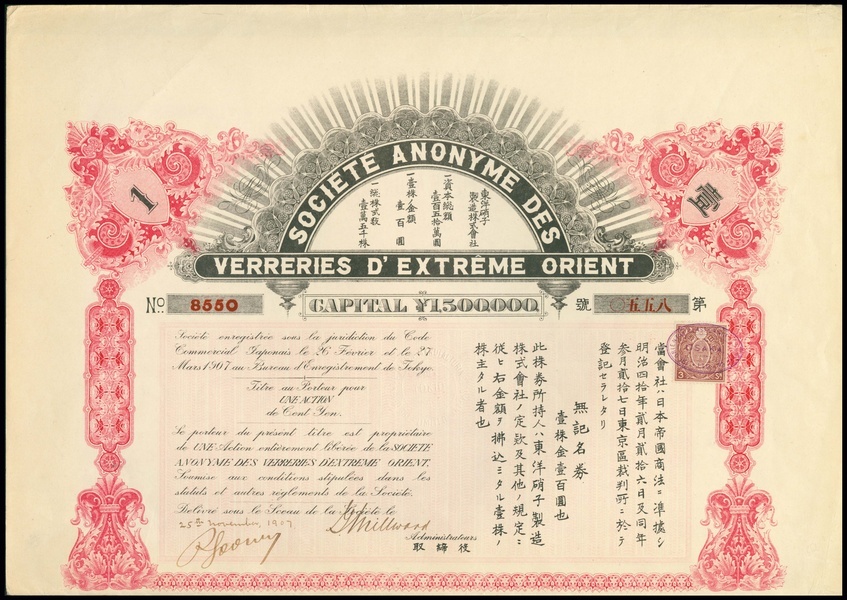 SOCIÉTÉ ANONYME DES
VERRERIES D'EXTRÊME ORIENT
1
壹
東洋硝子
製造株式會社
一資本総額
壹百五拾萬圓
一壹株ノ金額
壹百圓
一総株式数
壹萬五千株
No. 8550
CAPITAL ¥1,500,000
第
五五八
號
Société enregistrée sous la juridiction du Code
Commercial Japonais le 26 Février et le 27
Mars 1907 au Bureau d'Enregistrement de Tokyo.
Titre au Porteur pour
UNE ACTION
de Cent Yen.
Le porteur du présent titre est propriétaire
de UNE Action entièrement libérée de la SOCIETE
ANONYME DES VERRERIES D'EXTREME ORIENT.
Soumise aux conditions stipulées dans les
statuts et autres règlements de la Société.
Délivré sous le Sceau de la Société le
25th November, 1907
Millwood
Administrateurs
取締役
當會社ハ日本帝國商法ニ準據シ
明治四拾年貳月貳拾六日及同年
参月貳拾七日東京區裁判所ニ於テ
登記セラレタリ
無記名券
壹株金壹百圓也
此株券所持人ハ東洋硝子製造
株式會社ノ定款及其他ノ規定ニ
従ヒ右金額ヲ拂込ミタル壹株ノ
株主タル者也